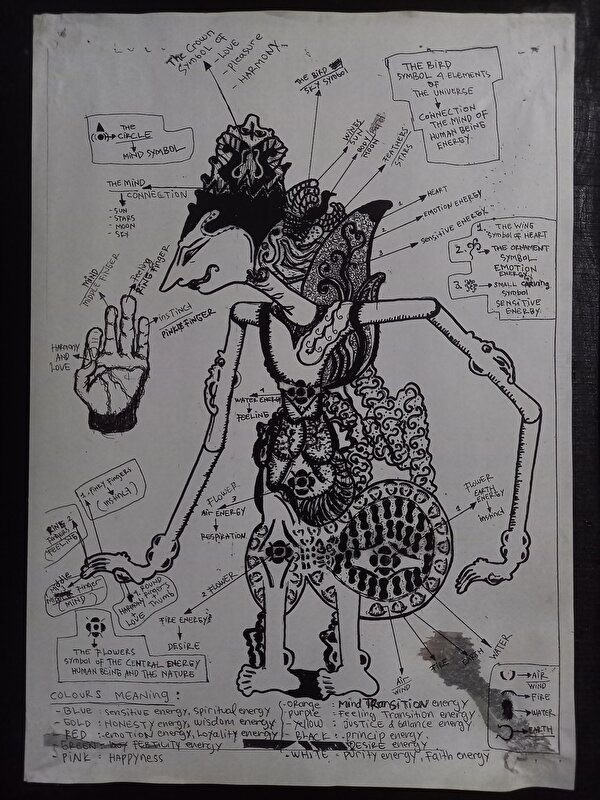 The Crown
Symbol of
- LOVE
- pleasure
- HARMONY
THE BIRD
SKY SYMBOL
THE BIRD
SYMBOL 4 ELEMENTS
OF
THE UNIVERSE
CONNECTION
THE MIND OF
HUMAN BEING
ENERGY.
THE
CIRCLE
MIND SYMBOL
WINGS
SUN
BODY
MOON
FEATHERS
STARS
THE MIND
CONNECTION
- SUN
- STARS
- MOON
- SKY
1 HEART
2 EMOTION ENERGY
3 SENSITIVE ENERGY
1. THE WING
Symbol OF HEART
2. THE ORNAMENT
SYMBOL
EMOTION
ENERGY
3. SMALL CARVING
symbol
SENSITIVE
ENERGY.
MIND
MIDDLE FINGER
Feeling
RING FINGER
instinct
PINKIE FINGER
HARMONY
AND
LOVE
4
WATER ENERGY
FEELING
FLOWER
3
AIR ENERGY
RESPIRATION
FLOWER
1 EARTH
ENERGY
instinct
1. PINKY FINGERS
(instinct)
RING 2
FINGERS
FEELING
Middle
Finger
MIND
4. ROUND
HARMONY Fingers
+ +
LOVE Thumb
2 FLOWER
FIRE ENERGY
DESIRE
THE FLOWERS
SYMBOL OF THE CENTRAL ENERGY
HUMAN BEING AND THE NATURE
AIR
WIND
FIRE
EARTH
WATER
AIR
WIND
FIRE
WATER
EARTH
COLOURS MEANING:
- BLUE : sensitive energy, spiritual energy
- GOLD : HONESTY energy, wisdom energy
- RED : emotion energy, Loyality energy
- GREEN : FERTILITY energy
- PINK : HAPPYNESS
- orange : Mind TRANSITION energy
purple : Feeling Transition energy
- yellow : justice & balance energy
- BLACK : princip energy
DESIRE energy
- WHITE : purity energy, Faith energy